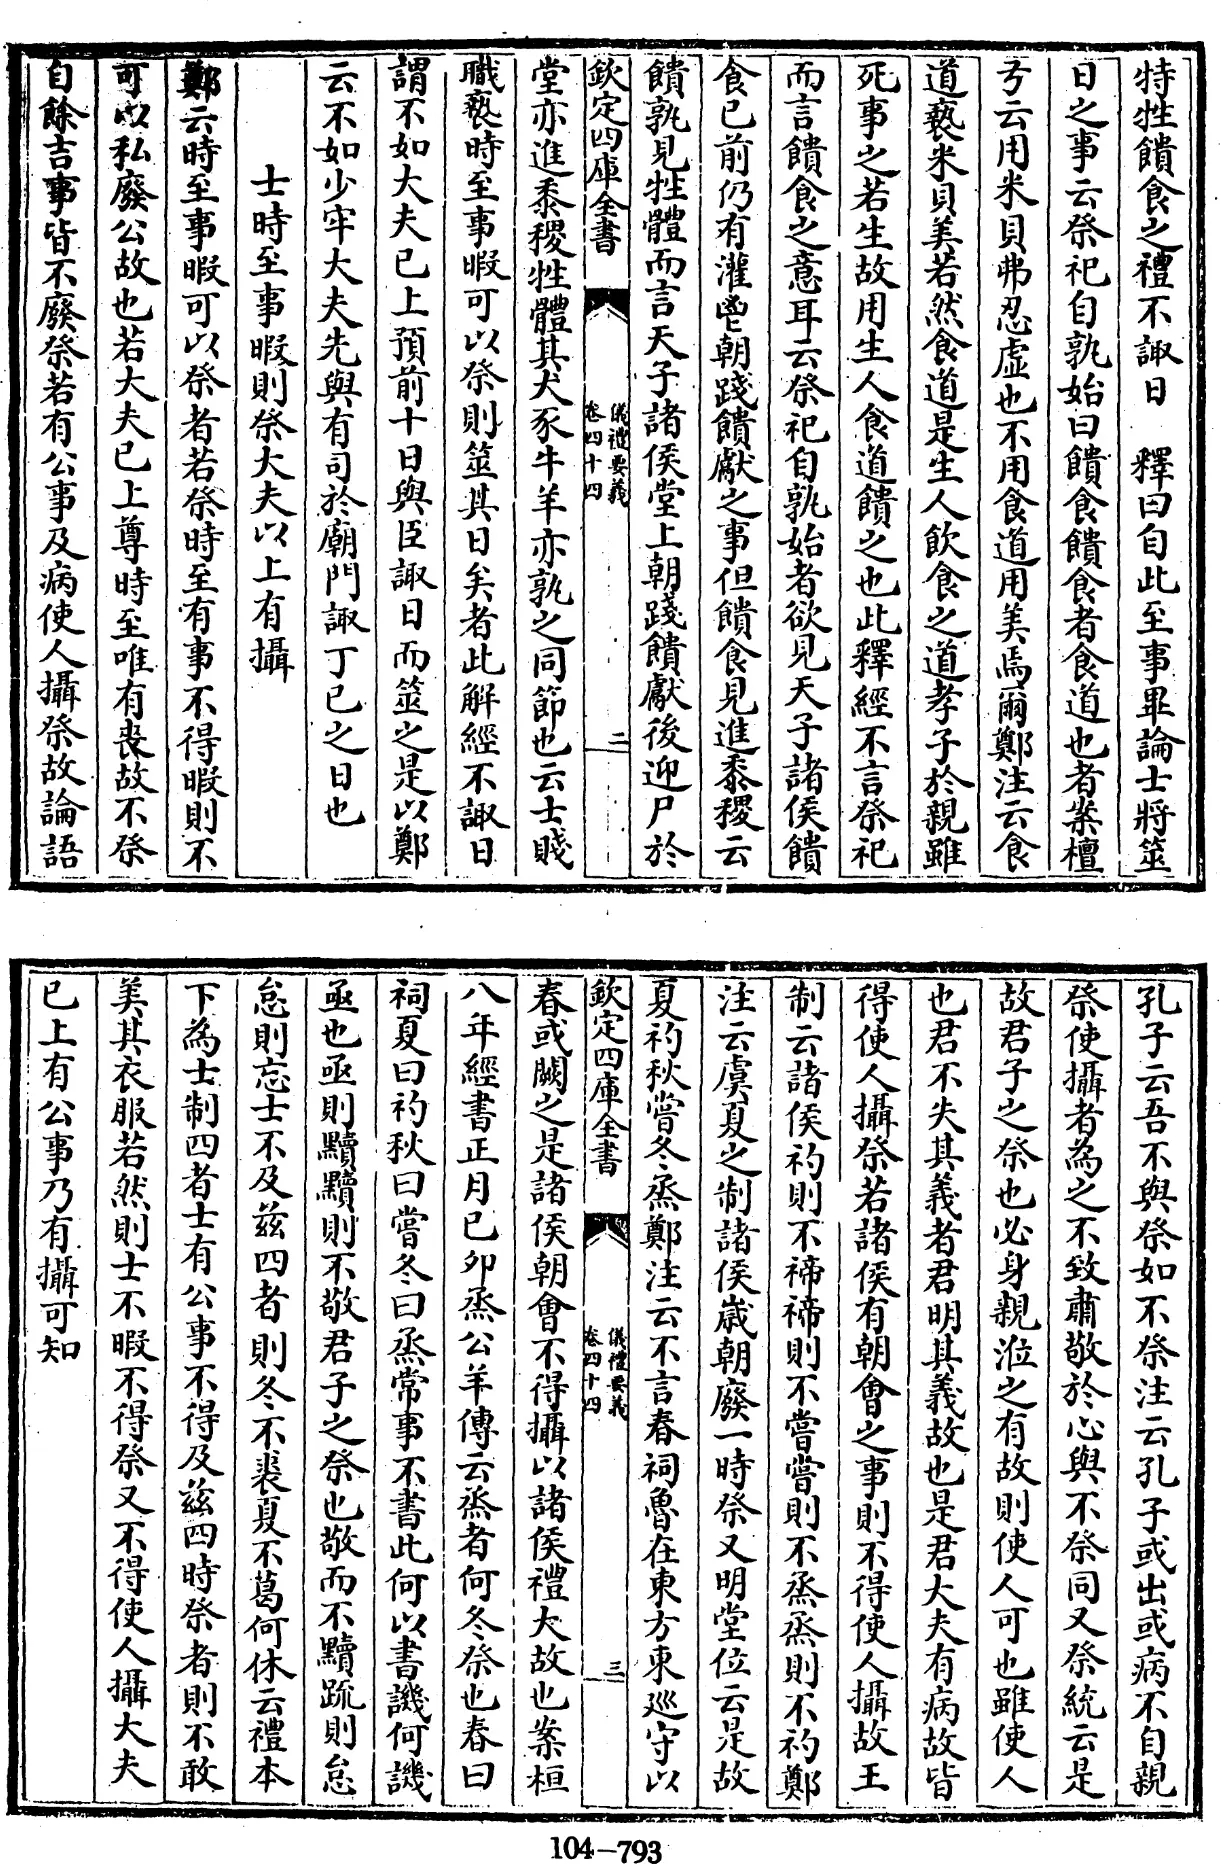 特牲饋食之禮不諏日　釋曰自此至事畢論士將筮
日之事云祭祀自孰始曰饋食饋食者食道也者案檀
弓云用米貝弗忍虛也不用食道用美焉爾鄭注云食
道䙝米貝美若然食道是生人飲食之道孝子於親雖
死事之若生故用生人食道饋之也此釋經不言祭祀
而言饋食之意耳云祭祀自孰始者欲見天子諸侯饋
食已前仍有灌鬯朝踐饋獻之事但饋食見進黍稷云
饋孰見牲體而言天子諸侯堂上朝踐饋獻後迎尸於
欽定四庫全書
儀禮要義
卷四十四
二
堂亦進黍稷牲體其犬豕牛羊亦孰之同節也云士賤
職䙝時至事暇可以祭則筮其日矣者此解經不諏日
謂不如大夫已上預前十日與臣諏日而筮之是以鄭
云不如少牢大夫先與有司於廟門諏丁已之日也
士時至事暇則祭大夫以上有攝
鄭云時至事暇可以祭者若祭時至有事不得暇則不
可以私廢公故也若大夫已上尊時至唯有喪故不祭
自餘吉事皆不廢祭若有公事及病使人攝祭故論語
孔子云吾不與祭如不祭注云孔子或出或病不自親
祭使攝者為之不致肅敬於心與不祭同又祭統云是
故君子之祭也必身親涖之有故則使人可也雖使人
也君不失其義者君明其義故也是君大夫有病故皆
得使人攝祭若諸侯有朝會之事則不得使人攝故王
制云諸侯礿則不禘禘則不嘗嘗則不烝烝則不礿鄭
注云虞夏之制諸侯歲朝廢一時祭又明堂位云是故
夏礿秋嘗冬烝鄭注云不言春祠魯在東方東巡守以
欽定四庫全書
儀禮要義
卷四十四
三
春或闕之是諸侯朝會不得攝以諸侯禮大故也案桓
八年經書正月已卯烝公羊傳云烝者何冬祭也春曰
祠夏曰礿秋曰嘗冬曰烝常事不書此何以書譏何譏
亟也亟則黷黷則不敬君子之祭也敬而不黷䟽則怠
怠則忘士不及兹四者則冬不裘夏不葛何休云禮本
下為士制四者士有公事不得及兹四時祭者則不敢
美其衣服若然則士不暇不得祭又不得使人攝大夫
已上有公事乃有攝可知
104-793